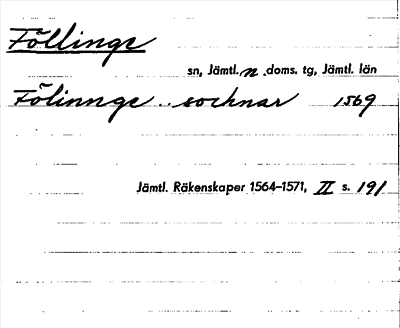 Föllinge
sn, Jämtl. n. doms. tg, Jämtl. län
Fölinnge .. sochnar 1569
Jämtl. Räkenskaper 1564-1571, II s. 191